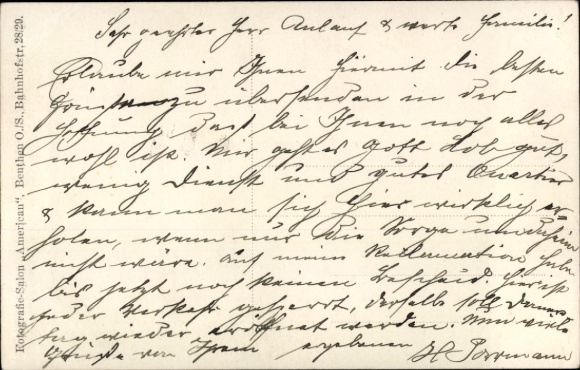 Sehr geehrter Herr Anlauf & werte Familie!
Erlaube mir Ihnen hiermit die besten
Grüsse zu übersenden in der
Hoffnung dass bei Ihnen noch alles
wohl ist. Mir geht es Gott Lob gut,
wenig Dienst und gutes Quartier
& kann man sich hier wirklich er-
holen, wenn nur die Sorge um daheim
nicht wäre. Auf meine Reklamation habe
bis jetzt noch keinen Bescheid. Hier ist
jeder Verkehr gesperrt, derselbe soll Donners
tag wieder eröffnet werden. Nun viele
Grüsse von Ihrem ergebenen H. Porrmann
Fotografie-Salon „American“, Beuthen O./S., Bahnhofstr. 28/29.